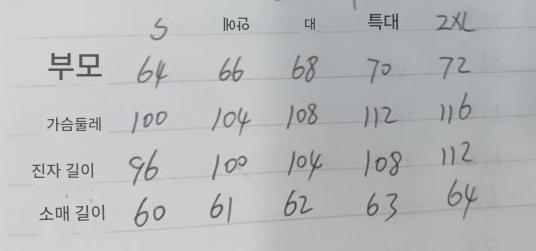 S 대 특대 2XL
부모 64 66 68 70 72
가슴둘레 100 104 108 112 116
진자 길이 96 100 104 108 112
소매 길이 60 61 62 63 64